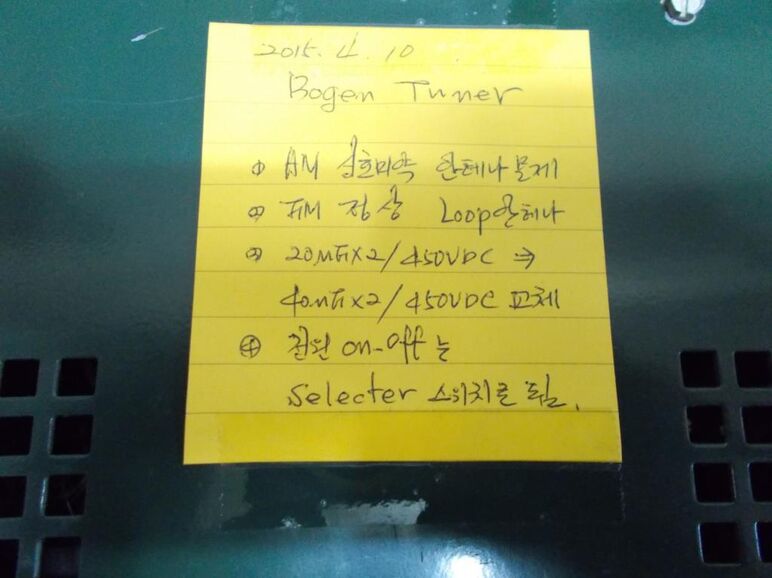 2015. 4. 10
Bogen Tuner
① AM 신호미약 안테나 문제
② FM 정상 Loop안테나
③ 20MFX2/450VDC ⇒
40MFX2/450VDC 교체
④ 전원 on-off는
Selecter 스위치로 됨.